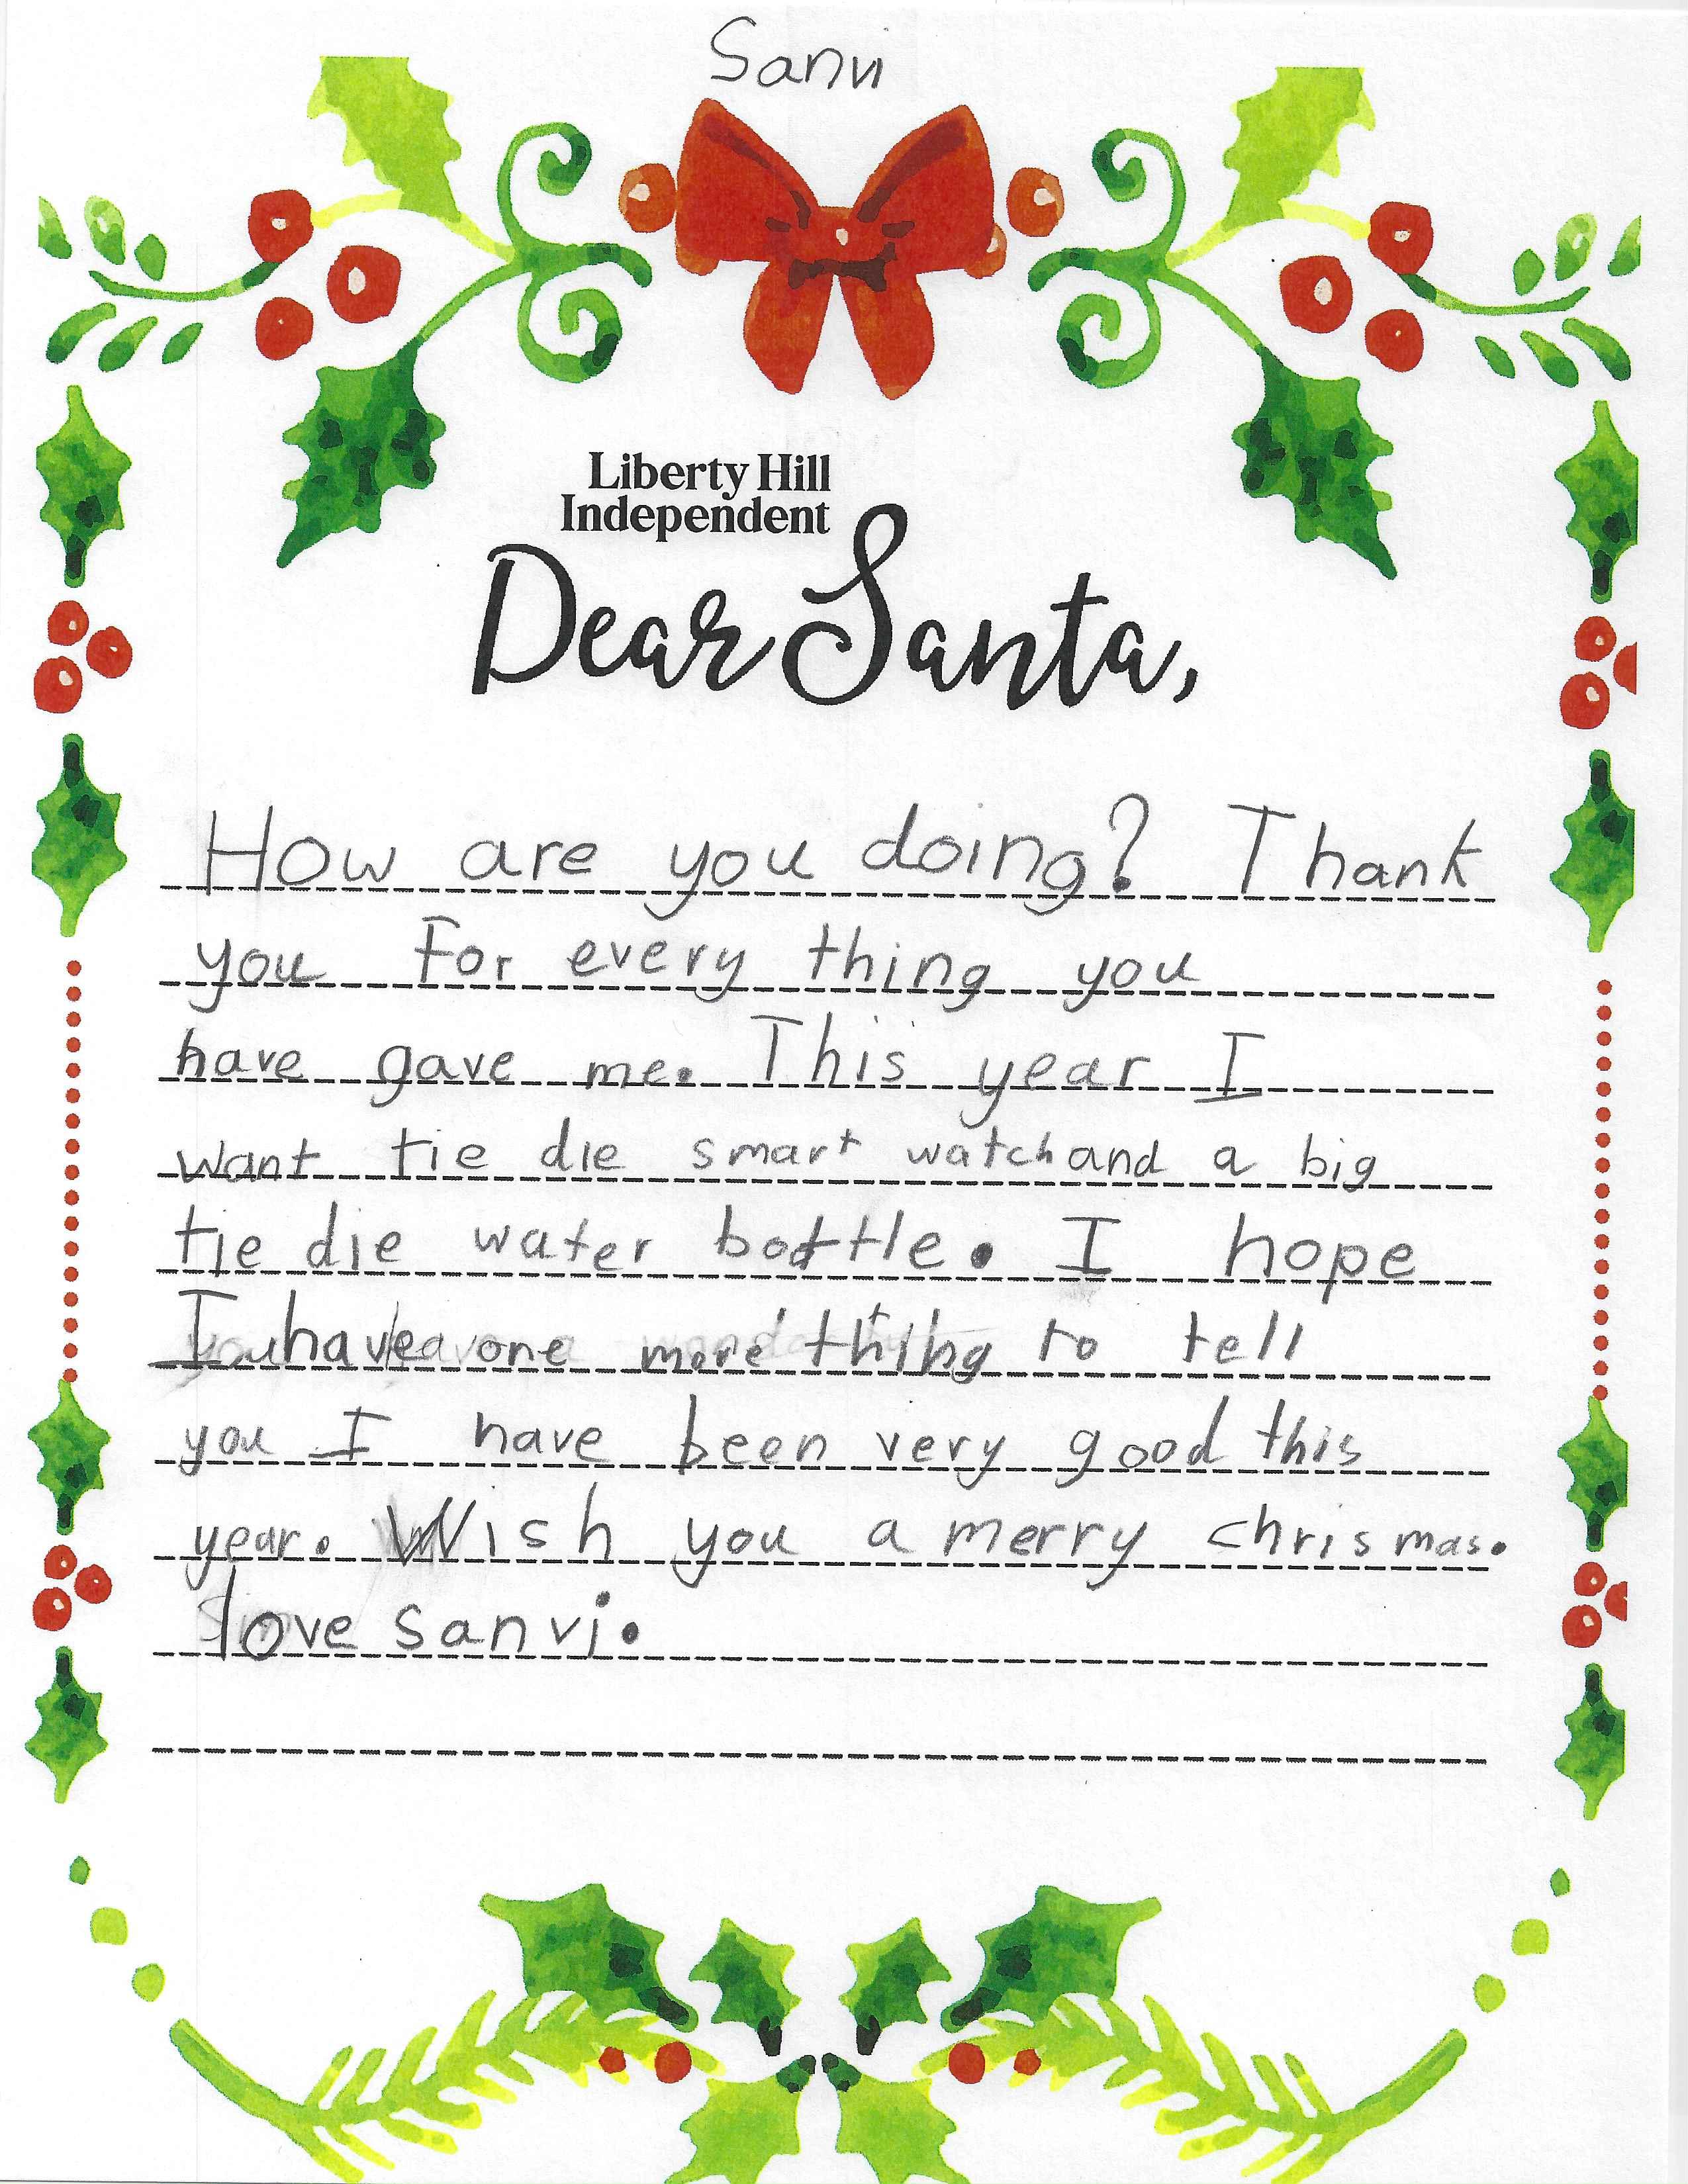 Sanvi
Liberty Hill
Independent
Dear Santa,
How are you doing? Thank
you For every thing you
have gave me. This year I
want tie die smart watch and a big
tie die water bottle. I hope
I have one more thing to tell
you I have been very good this
year. Wish you a merry chrismas.
love sanvi.